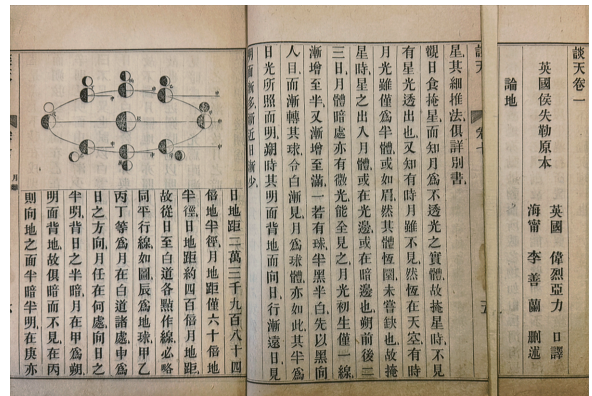 談天卷一
英國侯失勒原本
英國 偉烈亞力 口譯
海甯 李善蘭 刪述
論地
談天
星其細推法俱詳別書
觀日食掩星而知月爲不透光之實體故掩星時不見
有星光透出也又知有時月雖不見然恆在天空有時
月光雖僅爲半體或如眉然其體恆圓未嘗缺也故掩
星時星之出入月體或在光邊或在暗邊也朔前後二
三日月體暗處亦有微光能全見之月光初生僅一線
漸增至半又漸增至滿一若有球半黑半白先以黑向
人目而漸轉其球令白漸見月爲球體亦如此其半爲
日光所照而明朔時其明面背地而向日行漸遠日見
明面漸多漸近日漸少
日地距二萬三千九百八十四
倍地半徑月地距僅六十倍地
半徑日地距約四百倍月地距
故從日至白道各點作線必略
同平行線如圖辰爲地球甲乙
丙丁等爲月在白道諸處申爲
日之方向月任在何處向日之
半明背日之半暗月在甲爲朔
明面背地故俱暗而不見在丙
則向地之面半暗半明在庚亦